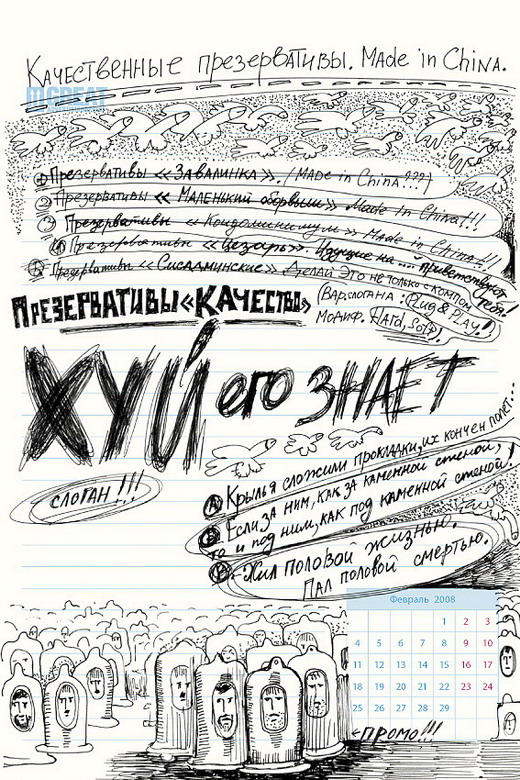 Качественные презервативы. Made in China.
MGREAT
① Презервативы «Завалинка». (Made in China???)
② Презервативы «Маленький оборвыш» Made in China!!!
③ Презервативы «Кондоминимум» Made in China!!!
④ Презервативы «Цезарь». Идущие на... приветствуют тебя!
⑤ Презервативы «Сисадминские» Делай это не только с компом
Презервативы «Качество»
(Вар. слогана: Plug & Play!
Модиф. Hard, Soft).
ХУЙ его ЗНАЕТ
слоган!!!
А Крылья сложили прокладки, их кончен полет...
Б Если за ним, как за каменной стеной,
то и под ним, как под каменной стеной!
В Жил половой жизнью.
Пал половой смертью.
Февраль 2008
1 2 3
4 5 6 7 8 9 10
11 12 13 14 15 16 17
18 19 20 21 22 23 24
25 26 27 28 29
←ПРОМО!!!